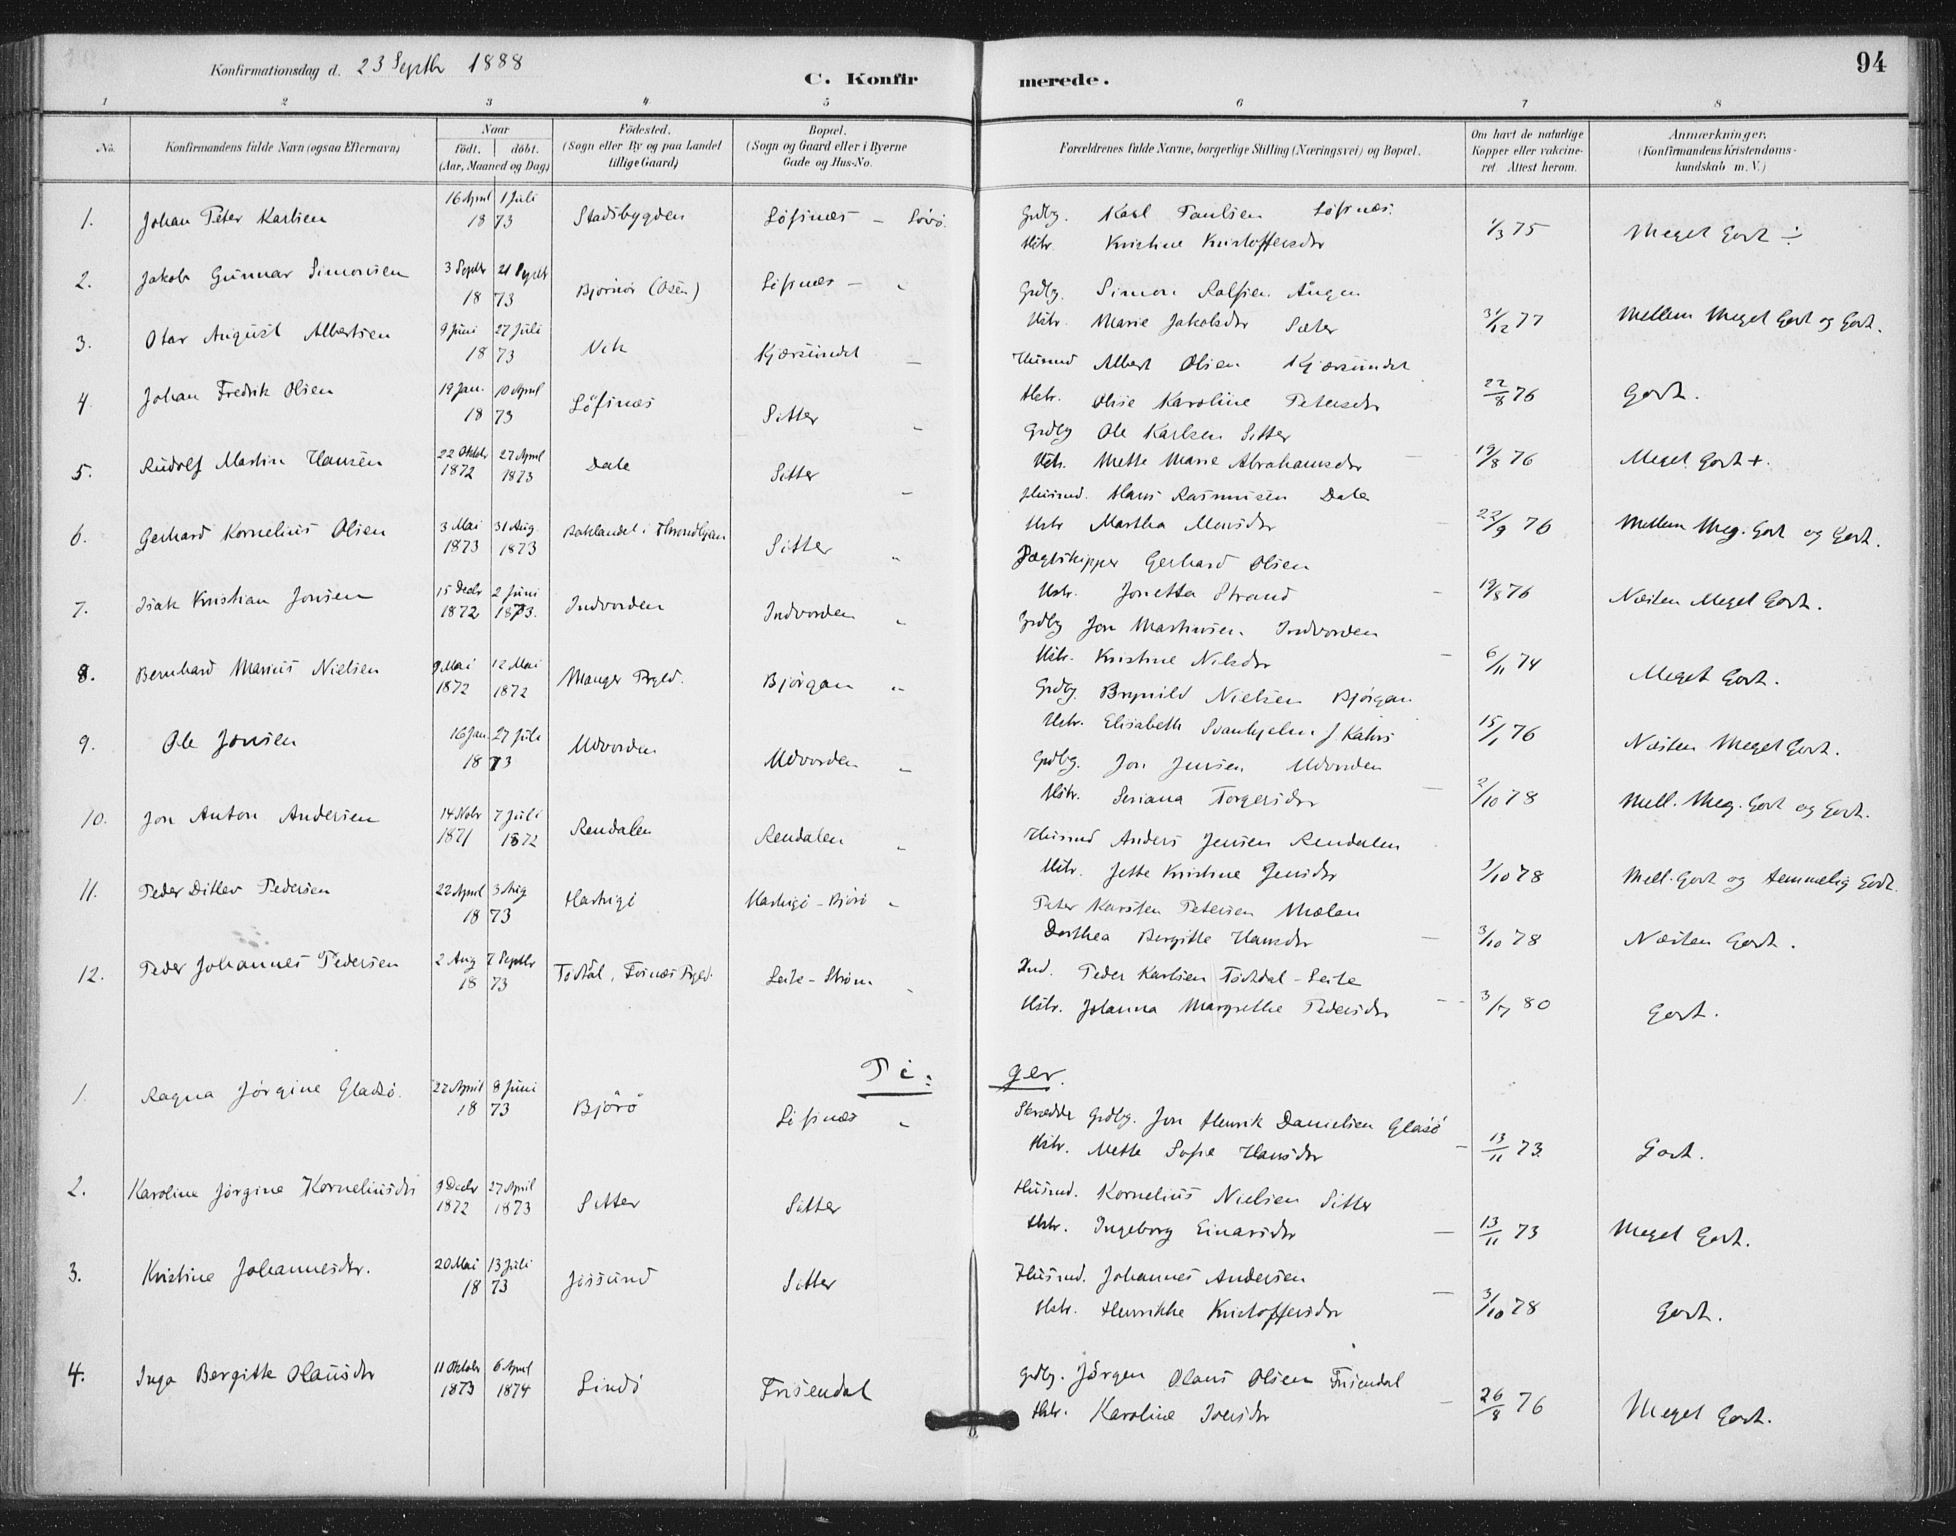 94
Konfirmationsdag d. 23 Septbr 1888
C. Konfirmerede.
1 2 3 4 5 6 7 8
No. Konfirmandens fulde Navn (ogsaa Efternavn) Naar født. døbt. (Aar, Maaned og Dag) Fødested. (Sogn eller By og paa Landet tillige Gaard) Bopæl. (Sogn og Gaard eller i Byerne Gade og Hus-No. Forældrenes fulde Navne, borgerlige Stilling (Næringsvei) og Bopæl. Om havt de naturlige Kopper eller vakcineret. Attest herom. Anmærkninger. (Konfirmandens Kristendomskundskab m. V.)
1. Johan Peter Karlsen 16 April 1 Juli 1873 Stadsbygden Løfsnæs – Grdbg. Karl Paulsen Løfsnæs.
Hstr. Kristine Kristoffersdr 1/3 75 Meget Godt ÷
2. Jakob Gunnar Simonsen 3 Septbr 21 Septbr 1873 Bjørnør (Osen) Løfsnæs – " Grdbg. Simon Rolfsen Angen
Hstr. Marie Jakobsdr Sæter 31/12 77 Mellem Meget Godt og Godt.
3. Otar August Albertsen 9 Juni 27 Juli 1873 Kjærsundet – Husmd Albert Olsen Kjærsundet
Hstr. Olise Karoline Petersdr 22/8 76 Godt.
4. Johan Fredrik Olsen 19 Jan. 10 April 1873 Løfsnæs Sitter " Grdbg Ole Karlsen Sitter
Hstr. Mette Marie Abrahamsdr – 19/8 76 Meget Godt +.
5. Rudolf Martin Hansen 22 Oktobr 1872 27 April 1873 Dale Sitter " Husmd. Hans Rasmusen Dale
Hstr Martha Monsdr – 22/9 76 Mellem Meg. Godt og Godt.
6. Gerhard Kornelius Olsen 3 Mai 1873 31 Aug 1873 Baklandet i Throndhjem Sitter " Jægtskipper Gerhard Olsen
Hstr. Jonetta Strand – 19/8 76 Næsten Meget Godt.
7. Isak Kristian Jonsen 15 Decbr 1872 2 Juni 1873. Indvorden Indvorden " Grdbg Jon Martinsen Indvorden
Hstr. Kristine Nilsdr – 6/11 74 Meget Godt.
8. Bernhard Marius Nielsen 9 Mai 1872 12 Mai 1872 Manger Prgld. Bjørgan " Grdbg. Brynild Nielsen Bjørgan
Hstr. Elisabeth Svanhjelm f Kahrs 15/1 76 Næsten Meget Godt.
9. Ole Jonsen 16 Jan. 27 Juli 1873 Udvorden Udvorden " Grdbg. Jon Jensen Udvorden
Hstr. Seriana Torgersdr – 2/10 78 Mell. Meg. Godt og Godt.
10. Jon Anton Andersen 14 Novbr 1871 7 Juli 1872 Rendalen Rendalen " Husmd Anders Jensen Rendalen
Hstr. Jette Kristine Jensdr 1/10 78 Mell. Godt og temmelig Godt.
11. Peder Ditlev Pedersen 22 April 3 Aug 1873 " Peter Karsten Petersen Mælan
Dorthea Bergitte Hansdr – 3/10 78 Næsten Godt.
12. Peder Johannes Pedersen 2 Aug 7 Septbr 1873 Fosnæs Prgld. Seile – Strøm " Ind. Peder Karlsen – Seile
Hstr. Johanna Margrethe Pedersdr – 3/7 80 Godt.
Piger.
1. Ragna Jørgine Gladsö. 27 April 8 Juni 1873 Bjørö Løfsnæs " Skrædder Grdbg. Jon Henrik Danielsen Glasö
Hstr. Mette Sofie Hansdr – 13/11 73 Godt.
2. Karoline Jørgine Korneliusdr 9 Decbr 1872 27 April 1873 Sitter Sitter Husmd. Kornelius Nielsen Sitter
Hstr. Ingeborg Einarsdr – 13/11 73 Meget Godt.
3. Kristine Johannesdr. 20 Mai 13 Juli 1873 Jøssund Sitter Husmd. Johannes Andersen
Hstr. Henrikke Kristoffersdr – 3/10 78 Godt.
4. Inga Bergitte Olausdr 11 Oktobr 1873 6 April 1874 Lindö Frisendal Grdbg. Jørgen Olaus Olsen Frisendal
Hstr. Karoline Iversdr – 26/8 76 Meget Godt.